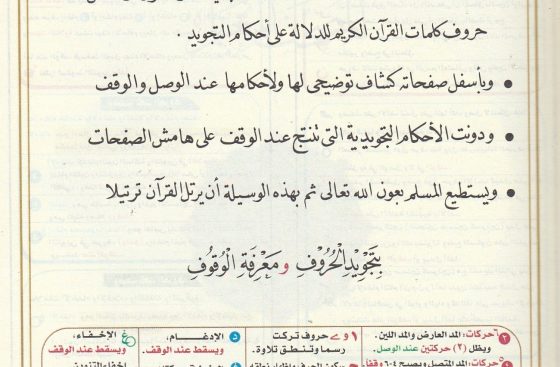 حروف كلمات القرآن الكريم للدلالة على أحكام التجويد .
• وبأسفل صفحاته كشاف توضيحي لها ولأحكامها عند الوصل والوقف
• ودونت الأحكام التجويدية التي تنتج عند الوقف على هامش الصفحات
• ويستطيع المسلم بعون الله تعالى ثم بهذه الوسيلة أن يرتل القرآن ترتيلا
بِتَجْوِيْدِ الْحُرُوْفِ وَمَعْرِفَةِ الْوُقُوْفِ
٦ حركات: المد العارض والمد اللين.
ويظل (٢) حركتين عند الوصل.
١ و ے حروف تركت
رسما وتنطق تلاوة.
د الإدغام،
ويسقط عند الوقف.
غ الإخفاء،
ويسقط عند الوقف
حركات: المد المتصل ويصبح ٤-٦ وقفا